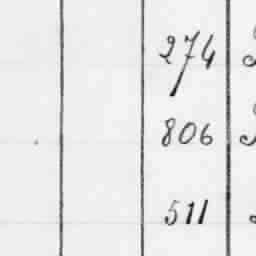 274
806
511